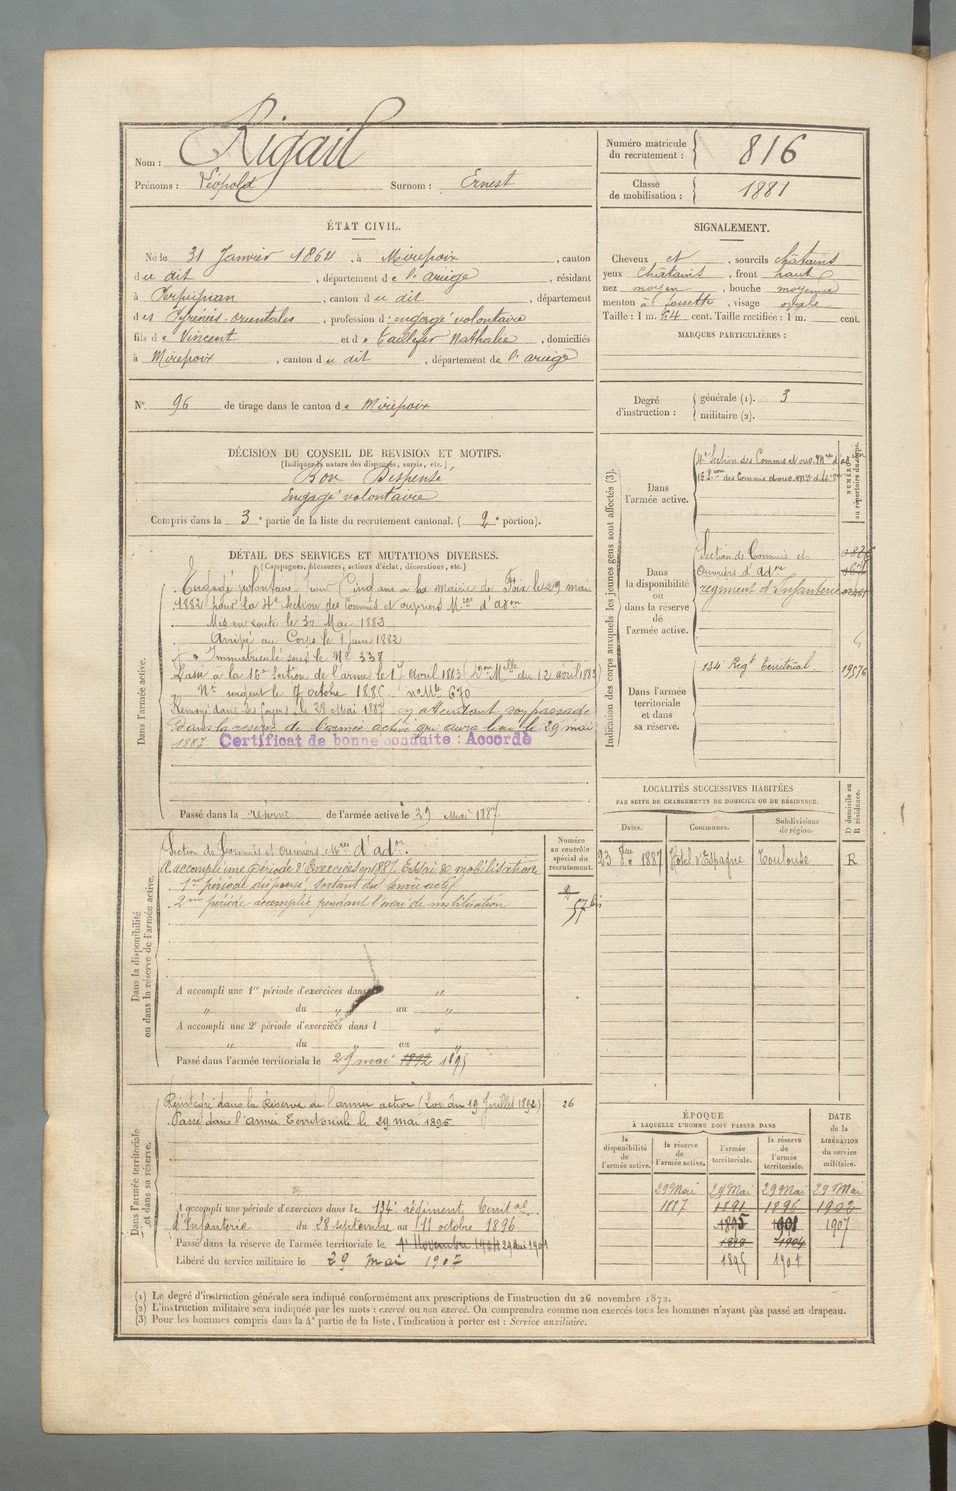 Nom : Rigail
Prénoms : Léopold Surnom : Ernest
Numéro matricule du recrutement : 816
Classe de mobilisation : 1881
ÉTAT CIVIL.
Né le 31 Janvier 1864, à Mirepoix, canton
du dit, département de l'ariège, résidant
à Perpignan, canton du dit, département
des Pyrénées-orientales, profession d'engagé volontaire
fils de Vincent et de Taillefer Nathalie, domiciliés
à Mirepoix, canton du dit, département de l'ariège
N° 96 de tirage dans le canton de Mirepoix
SIGNALEMENT.
Cheveux et, sourcils châtains
yeux châtains, front haut
nez moyen, bouche moyenne
menton à fossette, visage ovale
Taille : 1 m. 64 cent. Taille rectifiée : 1 m. cent.
MARQUES PARTICULIÈRES :
Degré d'instruction : générale (1). 3
militaire (2).
DÉCISION DU CONSEIL DE REVISION ET MOTIFS.
(Indiquer la nature des dispenses, sursis, etc.)
Bon Dispensé
Engagé volontaire
Compris dans la 3e partie de la liste du recrutement cantonal. (2e portion).
DÉTAIL DES SERVICES ET MUTATIONS DIVERSES.
(Campagnes, blessures, actions d'éclat, décorations, etc.)
Dans l'armée active.
Engagé volontaire pour Cinq ans à la Mairie de Foix le 29 mai
1882 pour la 4e Section des Commis et ouvriers Mres d'adon
Mis en route le 31 Mai 1883
Arrivé au Corps le 1 juin 1882
Immatriculé sous le N° 338
Passé à la 16e Section de l'arme le 1er avril 1883 (Don Mlle du 12 avril 1883)
Nt sergent le 7 octobre 1885 n° Mle 670
Renvoyé dans ses foyers le 29 Mai 1887 en attendant son passage
dans la réserve de l'armée active qui aura lieu le 29 mai
1887 Certificat de bonne conduite : Accordé
Passé dans la réserve de l'armée active le 29 Mai 1887.
Indication des corps auxquels les jeunes gens sont affectés (3).
NUMÉRO au répertoire du corps.
Dans l'armée active.
4e Section des Commis et ouv. Mres d'adon
16e Son des Commis et ouv. Mres d'adon
Dans la disponibilité ou dans la réserve de l'armée active.
Section de Commis et
Ouvriers d'adon
régiment d'Infanterie
Dans l'armée territoriale et dans sa réserve.
134 Regt Territorial. 19576
LOCALITÉS SUCCESSIVES HABITÉES
PAR SUITE DE CHANGEMENTS DE DOMICILE OU DE RÉSIDENCE.
Dates. Communes. Subdivisions de région. D domicile ou R résidence.
23 8bre 1887 Hôtel d'Espagne Toulouse R
Dans la disponibilité ou dans la réserve de l'armée active.
Numéro au contrôle spécial du recrutement.
Section de Commis et ouvriers Mres d'adon.
A accompli une période d'Exercices en 1887 Essai de mobilisation
1re période dispensé, sortant du service actif
2me période accomplie pendant l'essai de mobilisation
A accompli une 1re période d'exercices dans "
" du " au "
A accompli une 2e période d'exercices dans l "
" du " au "
Passé dans l'armée territoriale le 29 mai 1892 1895
Dans l'armée territoriale et dans sa réserve.
Réintégré dans la Réserve de l'armée active (Loi du 19 Juillet 1892) 26
Passé dans l'armée Territoriale le 29 mai 1895
A accompli une période d'exercices dans le 134e régiment territal
d'Infanterie du 28 septembre au 11 octobre 1896
Passé dans la réserve de l'armée territoriale le 1er Novembre 1901 29 Mai 1901
Libéré du service militaire le 29 mai 1907
ÉPOQUE
À LAQUELLE L'HOMME DOIT PASSER DANS
la disponibilité de l'armée active.
la réserve de l'armée active.
l'armée territoriale.
la réserve de l'armée territoriale.
DATE de la LIBÉRATION du service militaire.
29 Mai 29 Mai 29 Mai 29 Mai
1887 1891 1896 1902
1895 1901 1907
1898 1904
1895 1901
(1) Le degré d'instruction générale sera indiqué conformément aux prescriptions de l'instruction du 26 novembre 1872.
(2) L'instruction militaire sera indiquée par les mots : exercé ou non exercé. On comprendra comme non exercés tous les hommes n'ayant pas passé au drapeau.
(3) Pour les hommes compris dans la 4e partie de la liste, l'indication à porter est : Service auxiliaire.